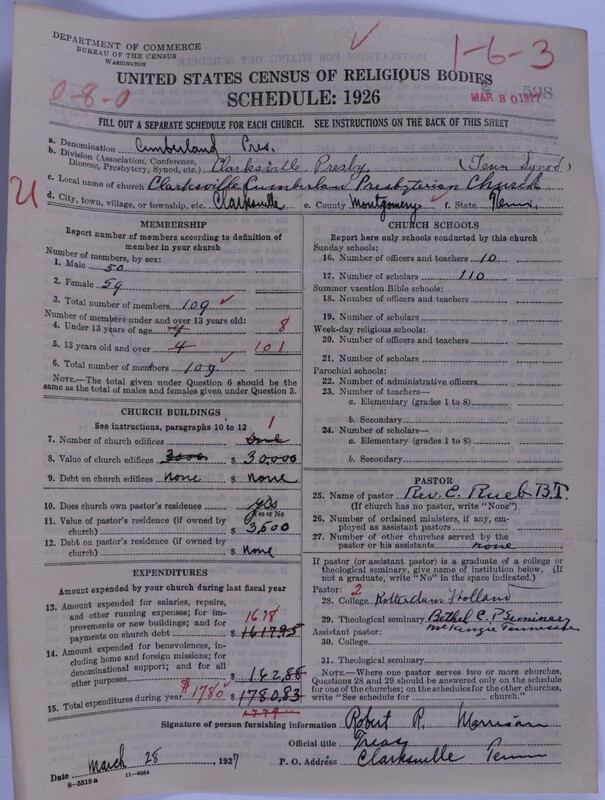 DEPARTMENT OF COMMERCE
BUREAU OF THE CENSUS
WASHINGTON
1-6-3
0-8-0
UNITED STATES CENSUS OF RELIGIOUS BODIES
SCHEDULE: 1926
MAR 30 1927
598
FILL OUT A SEPARATE SCHEDULE FOR EACH CHURCH. SEE INSTRUCTIONS ON THE BACK OF THIS SHEET
a. Denomination Cumberland Pres.
b. Division (Association, Conference, Diocese, Presbytery, Synod, etc.) Clarksville Presby (Tenn Synod)
c. Local name of church Clarksville Cumberland Presbyterian Church
d. City, town, village, or township, etc. Clarksville e. County Montgomery f. State Tenn.
MEMBERSHIP
Report number of members according to definition of member in your church
Number of members, by sex:
1. Male 50
2. Female 59
3. Total number of members 109
Number of members under and over 13 years old:
4. Under 13 years of age 4 8
5. 13 years old and over 4 101
6. Total number of members 109
NOTE.—The total given under Question 6 should be the same as the total of males and females given under Question 3.
CHURCH BUILDINGS
See instructions, paragraphs 10 to 12
7. Number of church edifices one 1
8. Value of church edifices 3000 $ 30000
9. Debt on church edifices none $ none
10. Does church own pastor's residence yes
Yes or No
11. Value of pastor's residence (if owned by church) $ 3,500
12. Debt on pastor's residence (if owned by church) $ none
EXPENDITURES
Amount expended by your church during last fiscal year
13. Amount expended for salaries, repairs, and other running expenses; for improvements or new buildings; and for payments on church debt 1638 $ 1617.95
14. Amount expended for benevolences, including home and foreign missions; for denominational support; and for all other purposes $ 142.88
15. Total expenditures during year $1780 $ 1780.83
CHURCH SCHOOLS
Report here only schools conducted by this church
Sunday schools:
16. Number of officers and teachers 10
17. Number of scholars 110
Summer vacation Bible schools:
18. Number of officers and teachers
19. Number of scholars
Week-day religious schools:
20. Number of officers and teachers
21. Number of scholars
Parochial schools:
22. Number of administrative officers
23. Number of teachers—
a. Elementary (grades 1 to 8)
b. Secondary
24. Number of scholars—
a. Elementary (grades 1 to 8)
b. Secondary
PASTOR
25. Name of pastor Rev. C. Rueb B.T.
(If church has no pastor, write "None")
26. Number of ordained ministers, if any, employed as assistant pastors
27. Number of other churches served by the pastor or his assistants none
If pastor (or assistant pastor) is a graduate of a college or theological seminary, give name of institution below, (If not a graduate, write "No" in the space indicated.)
Pastor: 2
28. College Rotterdam Holland
29. Theological seminary Bethel C. P. Seminary
McKenzie Tennessee
Assistant pastor:
30. College
31. Theological seminary
NOTE.—Where one pastor serves two or more churches, Questions 28 and 29 should be answered only on the schedule for one of the churches; on the schedules for the other churches, write "See schedule for church."
Signature of person furnishing information Robert R. Morrison
Official title Treas
Date March 28, 1927 P. O. Address Clarksville Tenn
8-5515 a 11-9084